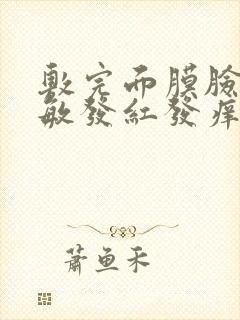 敷完面膜臉
敏發紅發痒
蕭魚禾